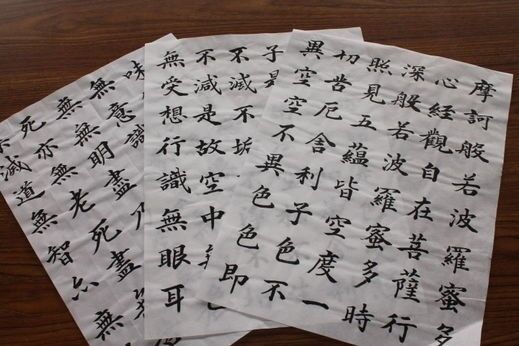 摩訶般若波羅蜜多
心經觀自在菩薩行
深般若波羅蜜多時
照見五蘊皆空度一
切苦厄舍利子色不
異空空不異色色即
子
不滅不垢
不減是故空中
無受想行識無眼耳
味
無意識
無無明盡乃
死亦無老死盡
滅道無智亦無